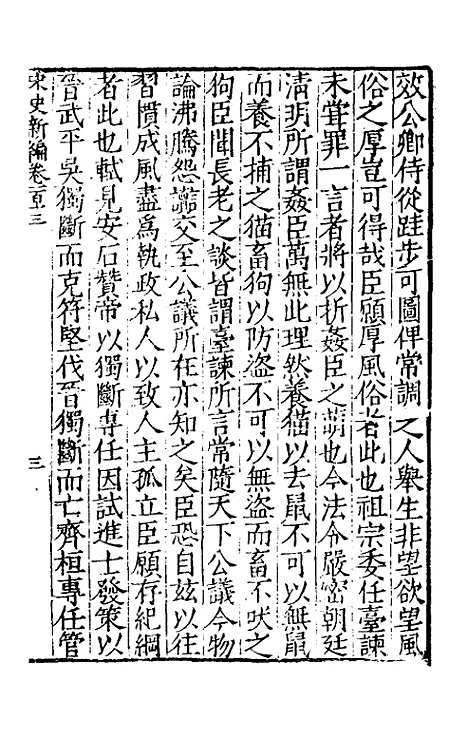 效公卿侍從跬步可圖俾常調之人舉生非望欲望風
俗之厚豈可得哉臣願厚風俗者此也祖宗委任臺諫
未甞罪一言者將以折姦臣之萌也今法令嚴密朝廷
清明所謂姦臣萬無此理然養猫以去鼠不可以無鼠
而養不捕之猫畜狗以防盗不可以無盗而畜不吠之
狗臣聞長老之談皆謂臺諫所言常隨天下公議今物
論沸騰怨讟交至公議所在亦知之矣臣恐自兹以往
習慣成風盡為執政私人以致人主孤立臣願存紀綱
者此也軾見安石贊帝以獨斷専任因試進士發策以
晉武平吳獨斷而克符堅伐晉獨斷而亡齊桓専任管
宋史新編卷一百三
三